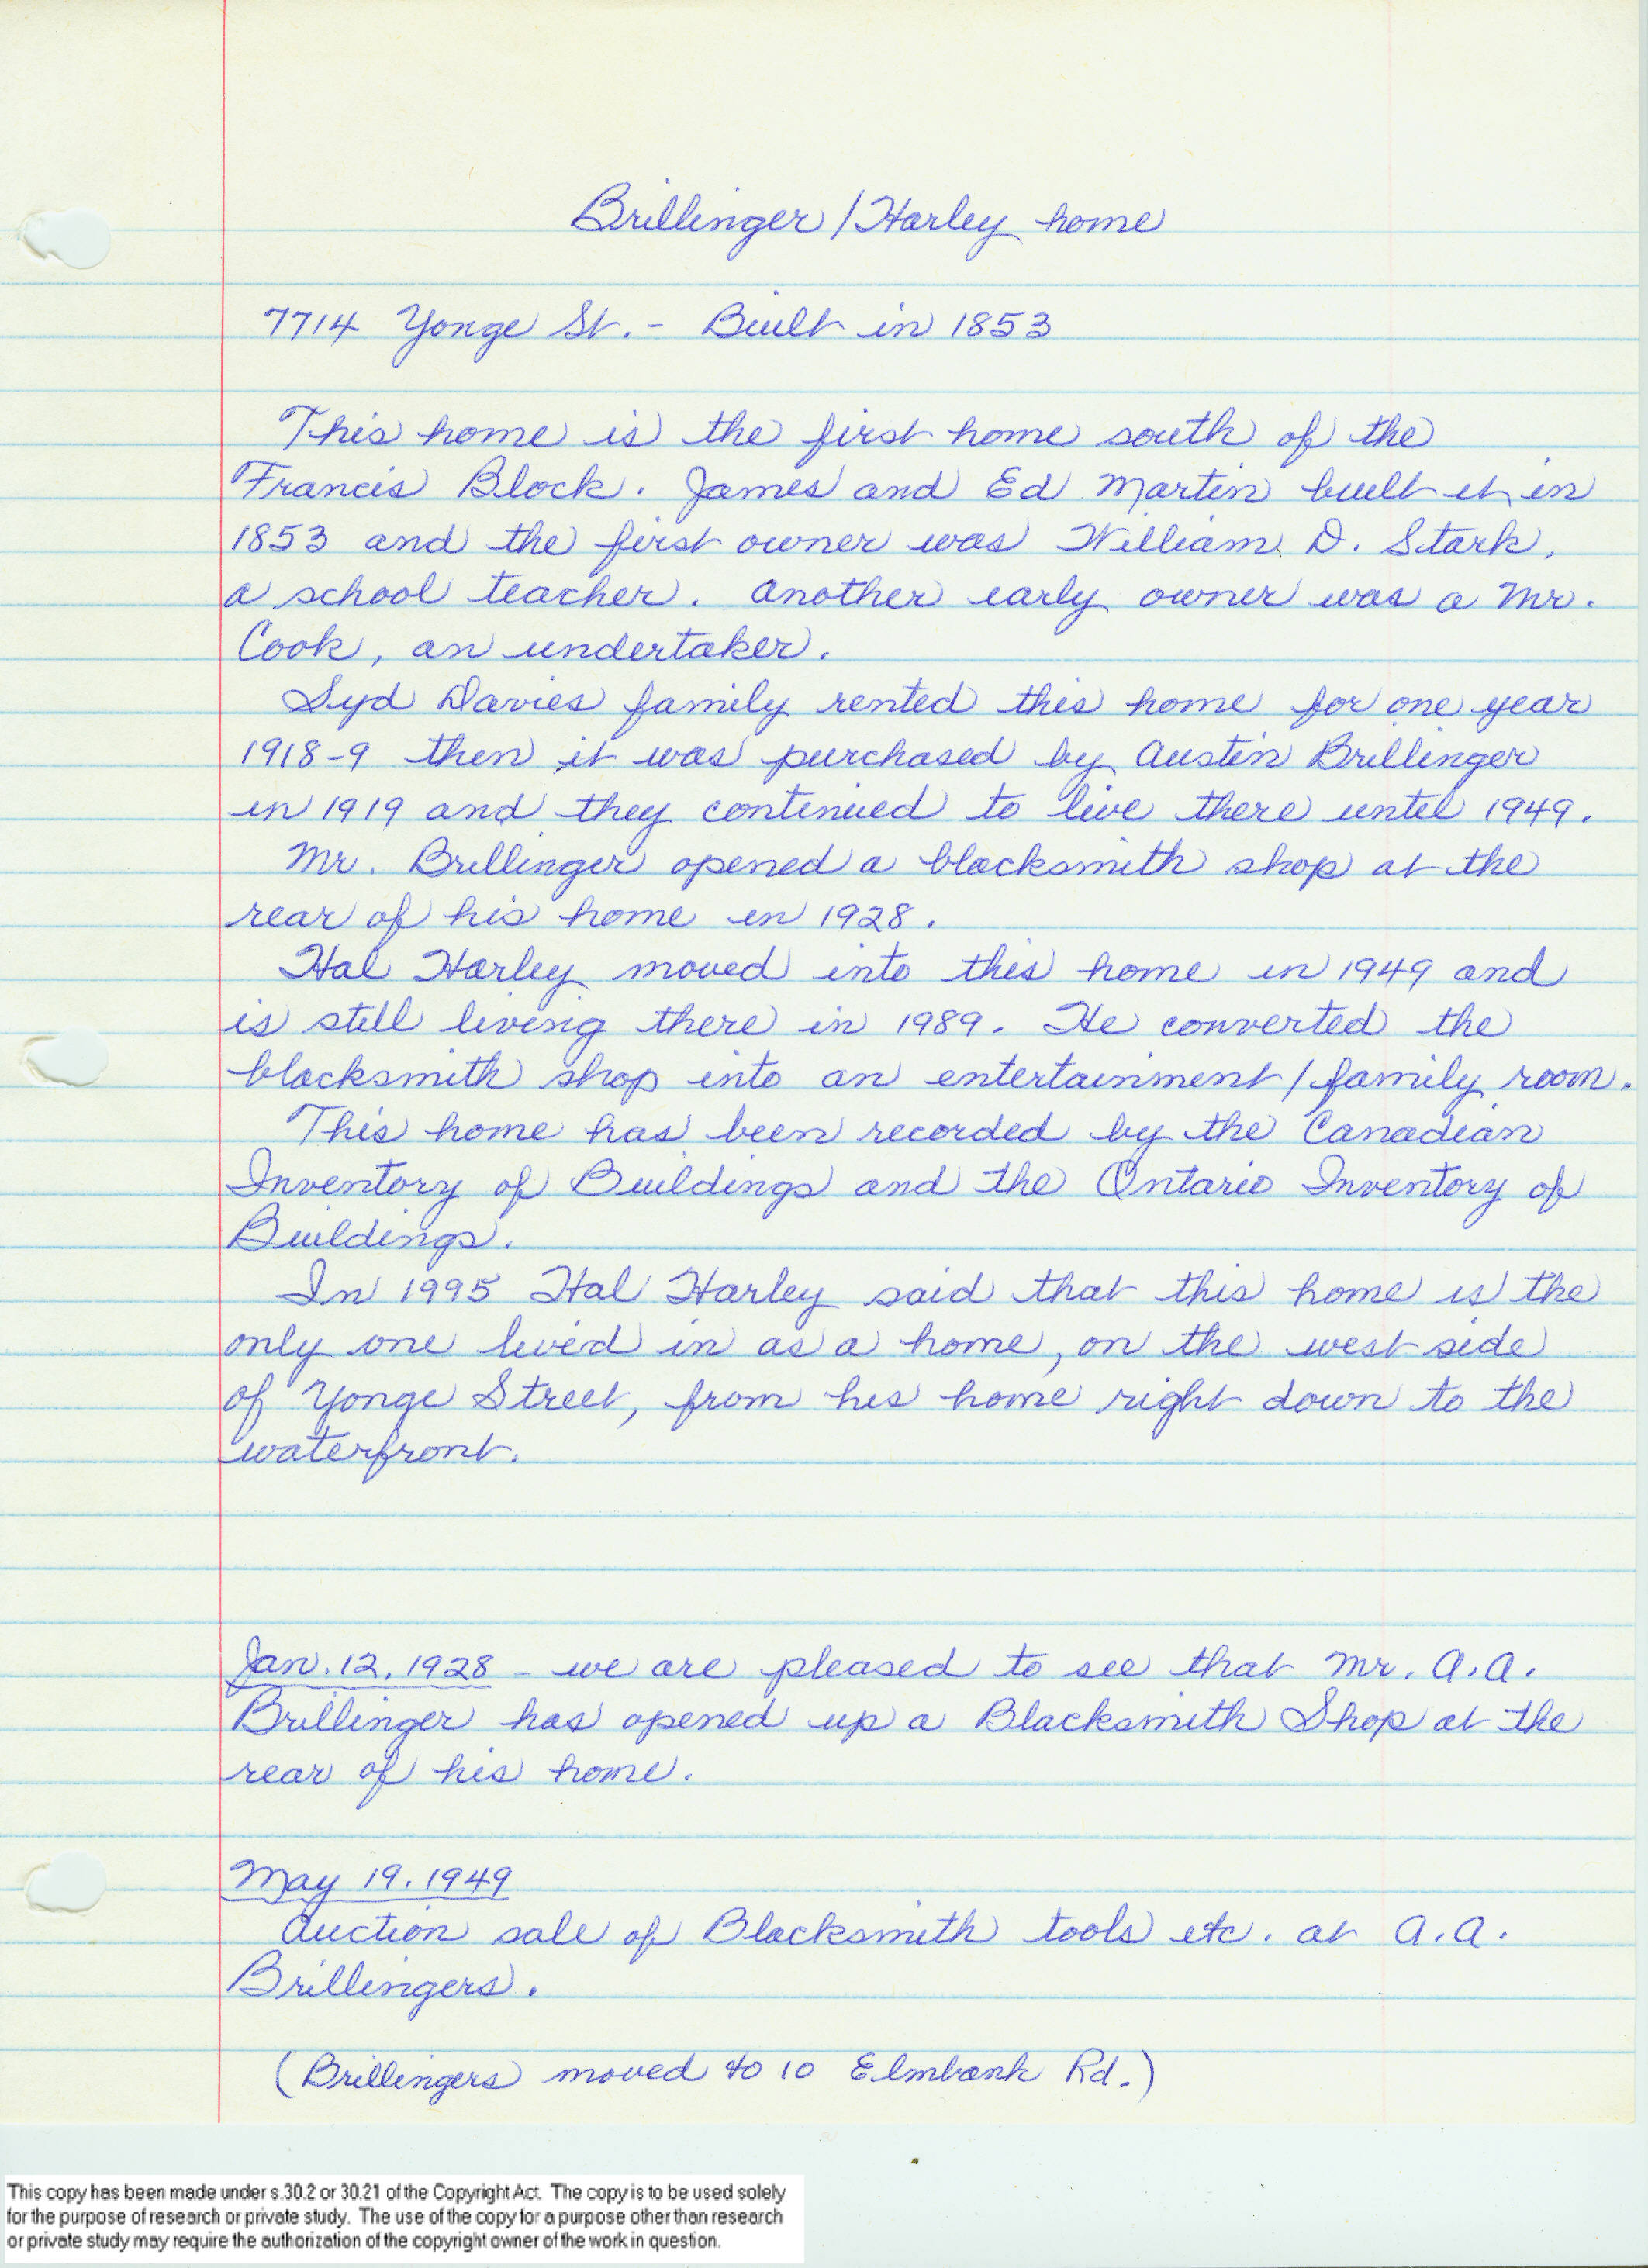 Brillinger/Harley home
7714 Yonge St. - Built in 1853
This home is the first home south of the
Francis Block. James and Ed Martin built it in
1853 and the first owner was William D. Stark,
a school teacher. Another early owner was a Mr.
Cook, an undertaker.
Syd Davies family rented this home for one year
1918-9 then it was purchased by Austin Brillinger
in 1919 and they continued to live there until 1949.
Mr. Brillinger opened a blacksmith shop at the
rear of his home in 1928.
Hal Harley moved into this home in 1949 and
is still living there in 1989. He converted the
blacksmith shop into an entertainment/family room.
This home has been recorded by the Canadian
Inventory of Buildings and the Ontario Inventory of
Buildings.
In 1995 Hal Harley said that this home is the
only one lived in as a home, on the west side
of Yonge Street, from his home right down to the
waterfront.
Jan. 12, 1928 - we are pleased to see that Mr. A.A.
Brillinger has opened up a Blacksmith Shop at the
rear of his home.
May 19, 1949
Auction sale of Blacksmith tools etc. at A.A.
Brillingers.
(Brillingers moved to 10 Elmbank Rd.)
This copy has been made under s.30.2 or 30.21 of the Copyright Act. The copy is to be used solely
for the purpose of research or private study. The use of the copy for a purpose other than research
or private study may require the authorization of the copyright owner of the work in question.